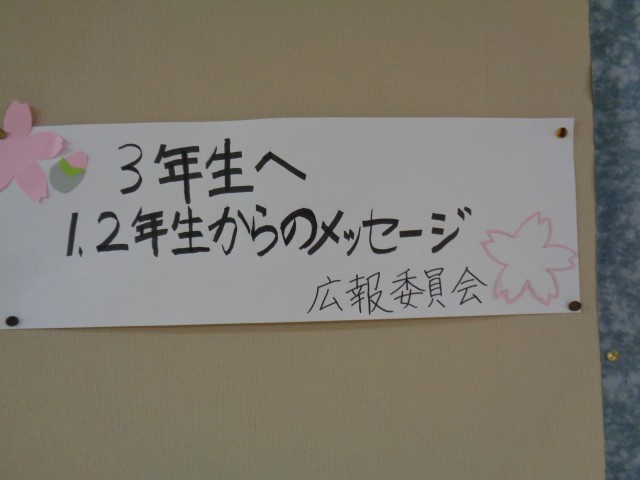 3年生へ
1.2年生からのメッセージ
広報委員会